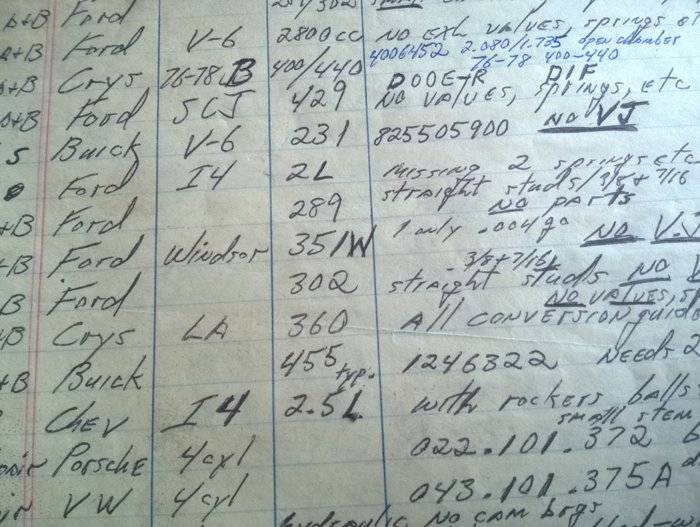 A+B Ford
A+B Ford V-6 2800cc NO EXH VALVES, springs etc
4006452 2.080/1.735 open chamber
A+B Crys 76-78 B 400/440 76-78 400-440
A+B Ford SCJ 429 DOOE-R DIF
NO VALVES, springs, etc
S Buick V-6 231 825505900 NO VJ
Ford I4 2L MISSING 2 springs etc
A+B Ford 289 straight studs/3/8+7/16
NO PARTS
A+B Ford Windsor 351W 1 only .004/90 NO V.V
B Ford 302 straight studs NO
3/8+7/16
NO VALVES,
A+B Crys LA 360 All CONVERSION guid
A+B Buick 455 typ. 1246322 NEEDS 2
Chev I4 2.5L with rockers balls
small stem
Porsche 4cyl 022.101.372
VW 4cyl 043.101.375A
hydraulic NO CAM brgs